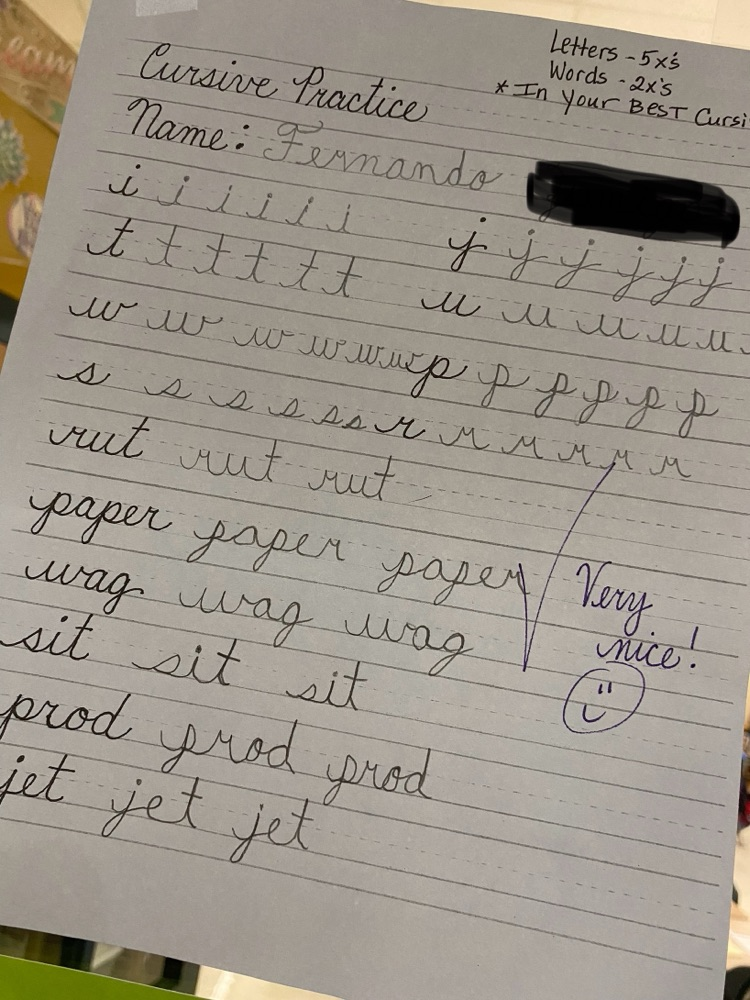 Letters - 5x's
Words - 2x's
* In Your BEST Cursi
Cursive Practice
Name: Fernando
i i i i i i j j j j j j
t t t t t t u u u u u
w w w w w w w p p p p p p
s s s s s s r r r r r r
rut rut rut
paper paper paper
wag wag wag
Very
nice!
sit sit sit
prod prod prod
jet jet jet